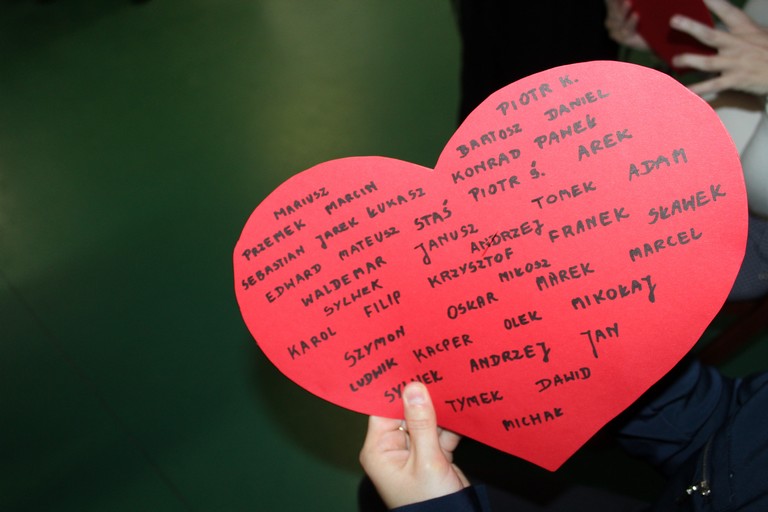 PIOTR K.
BARTOSZ DANIEL
KONRAD PAWEŁ
MARIUSZ PIOTR Ś. AREK
PRZEMEK MARCIN
SEBASTIAN JAREK ŁUKASZ STAŚ TOMEK ADAM
EDWARD MATEUSZ JANUSZ ANDRZEJ FRANEK SŁAWEK
WALDEMAR KRZYSZTOF
SYLWEK MIŁOSZ MAREK MARCEL
KAROL FILIP OSKAR
SZYMON KACPER OLEK MIKOŁAJ
LUDWIK ANDRZEJ JAN
SYLWEK TYMEK DAWID
MICHAŁ